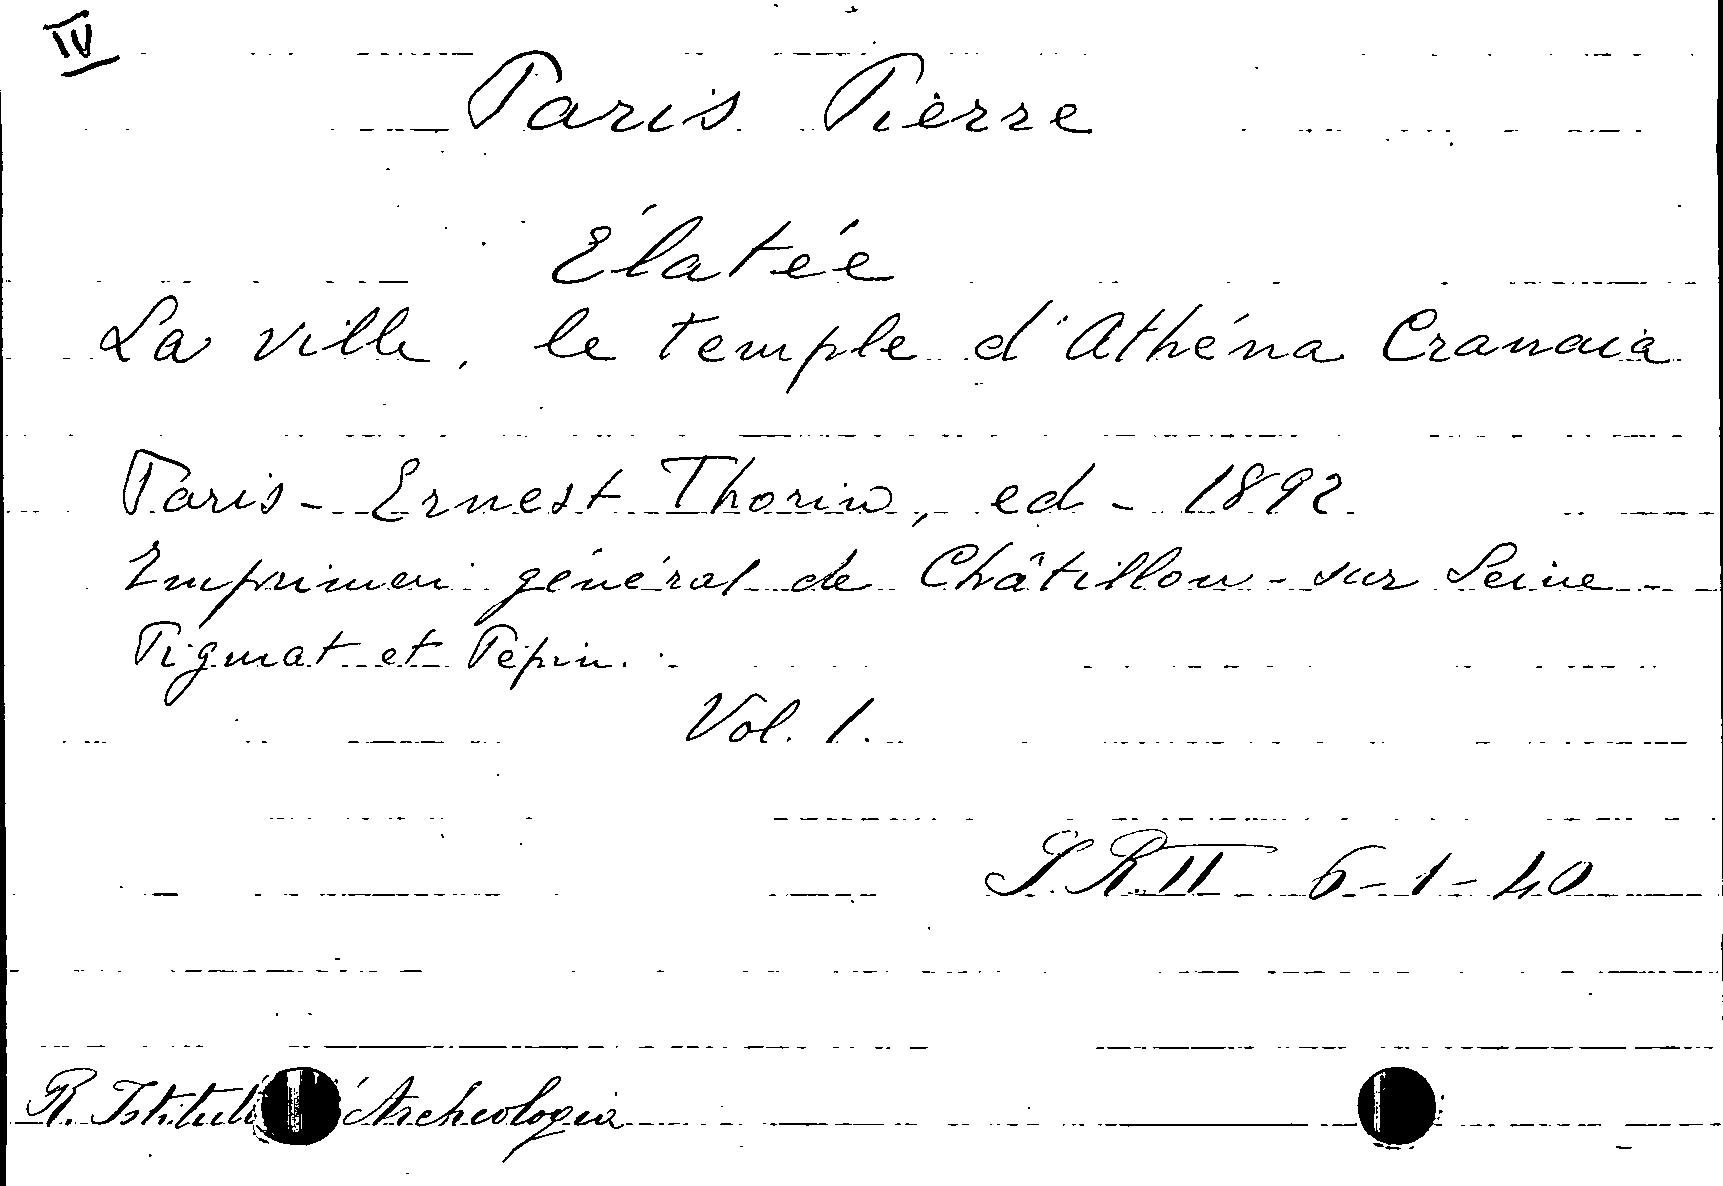 IV
Paris Pierre
Élatée
La ville, le temple d'Athéna Cranaia
Paris - Ernest Thorin, ed - 1892
Imprimeri général de Châtillon - sur Seine -
Pignat et Pépin.
Vol. 1.
S. R. II 6-1-40
R. Istitut Archeologia